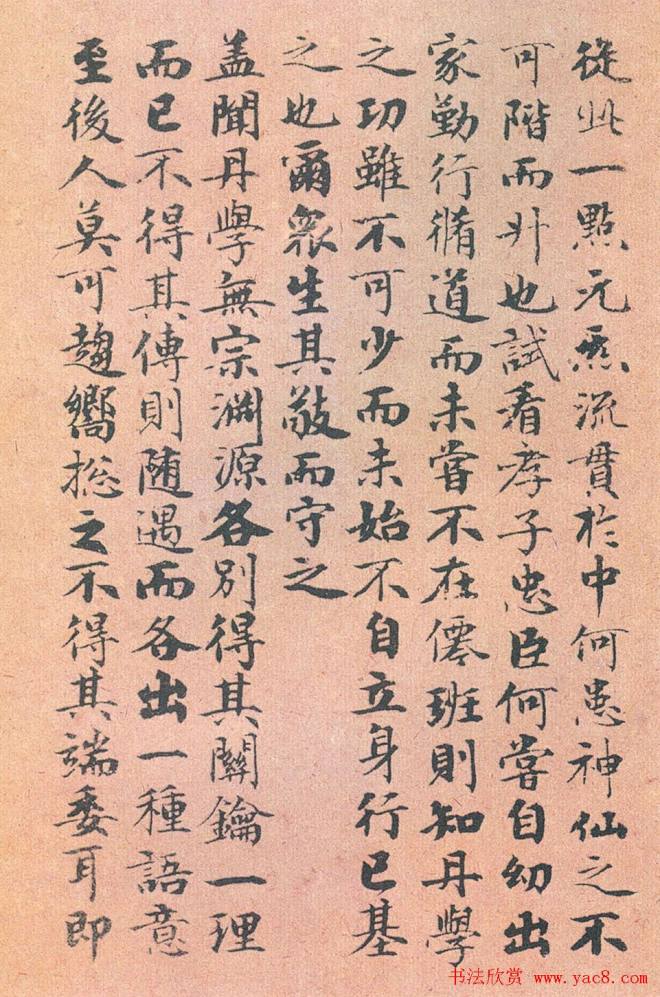 從此一點元炁流貫於中何患神仙之不
可階而升也試看孝子忠臣何嘗自幼出
家勤行脩道而未嘗不在僊班則知丹學
之功雖不可少而未始不自立身行已基
之也爾衆生其敬而守之
盖聞丹學無宗渊源各別得其關鑰一理
而已不得其傳則随遇而各出一種語意
至後人莫可趨嚮揔之不得其端委耳即
书法欣赏 www.yac8.com